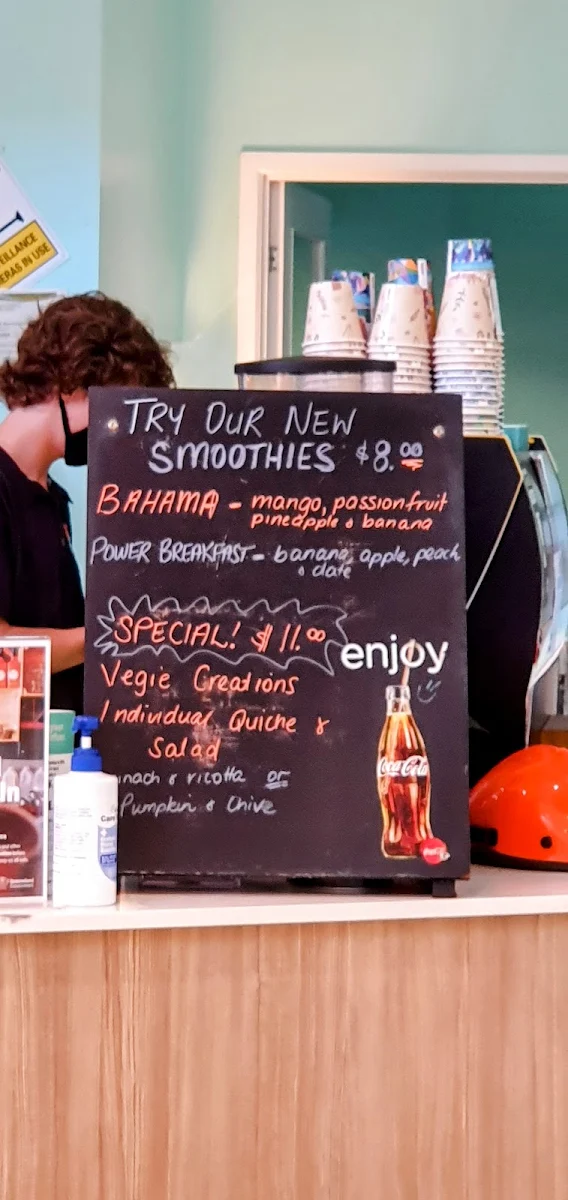 TRY OUR NEW
SMOOTHIES $8.00
BAHAMA - mango, passionfruit
pineapple & banana
POWER BREAKFAST - banana, apple, peach
& date
SPECIAL! $11.00
enjoy
Vegie Creations
Individual Quiche &
Salad
inach & ricotta or
Pumpkin & Chive
Coca-Cola
EILLANCE
ERAS IN USE
Care